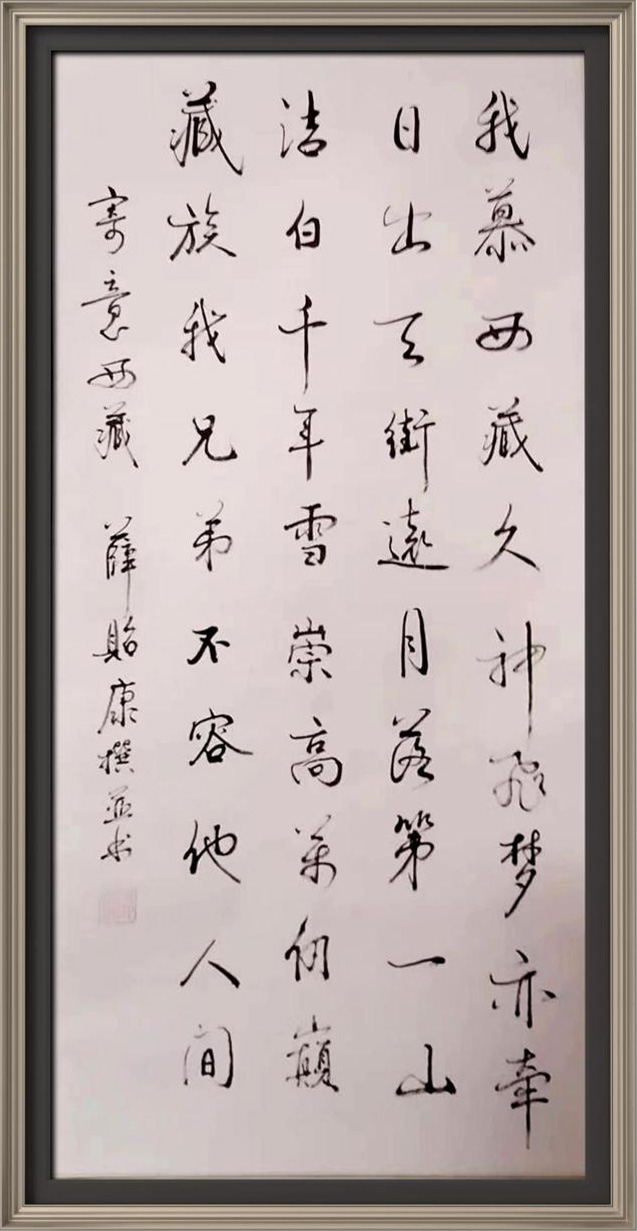 我慕西藏久神飛梦亦牽
日出天街遠月落第一山
洁白千年雪崇高萬仞巔
藏族我兄弟不容他人间
寄意西藏 薛貽康撰並书